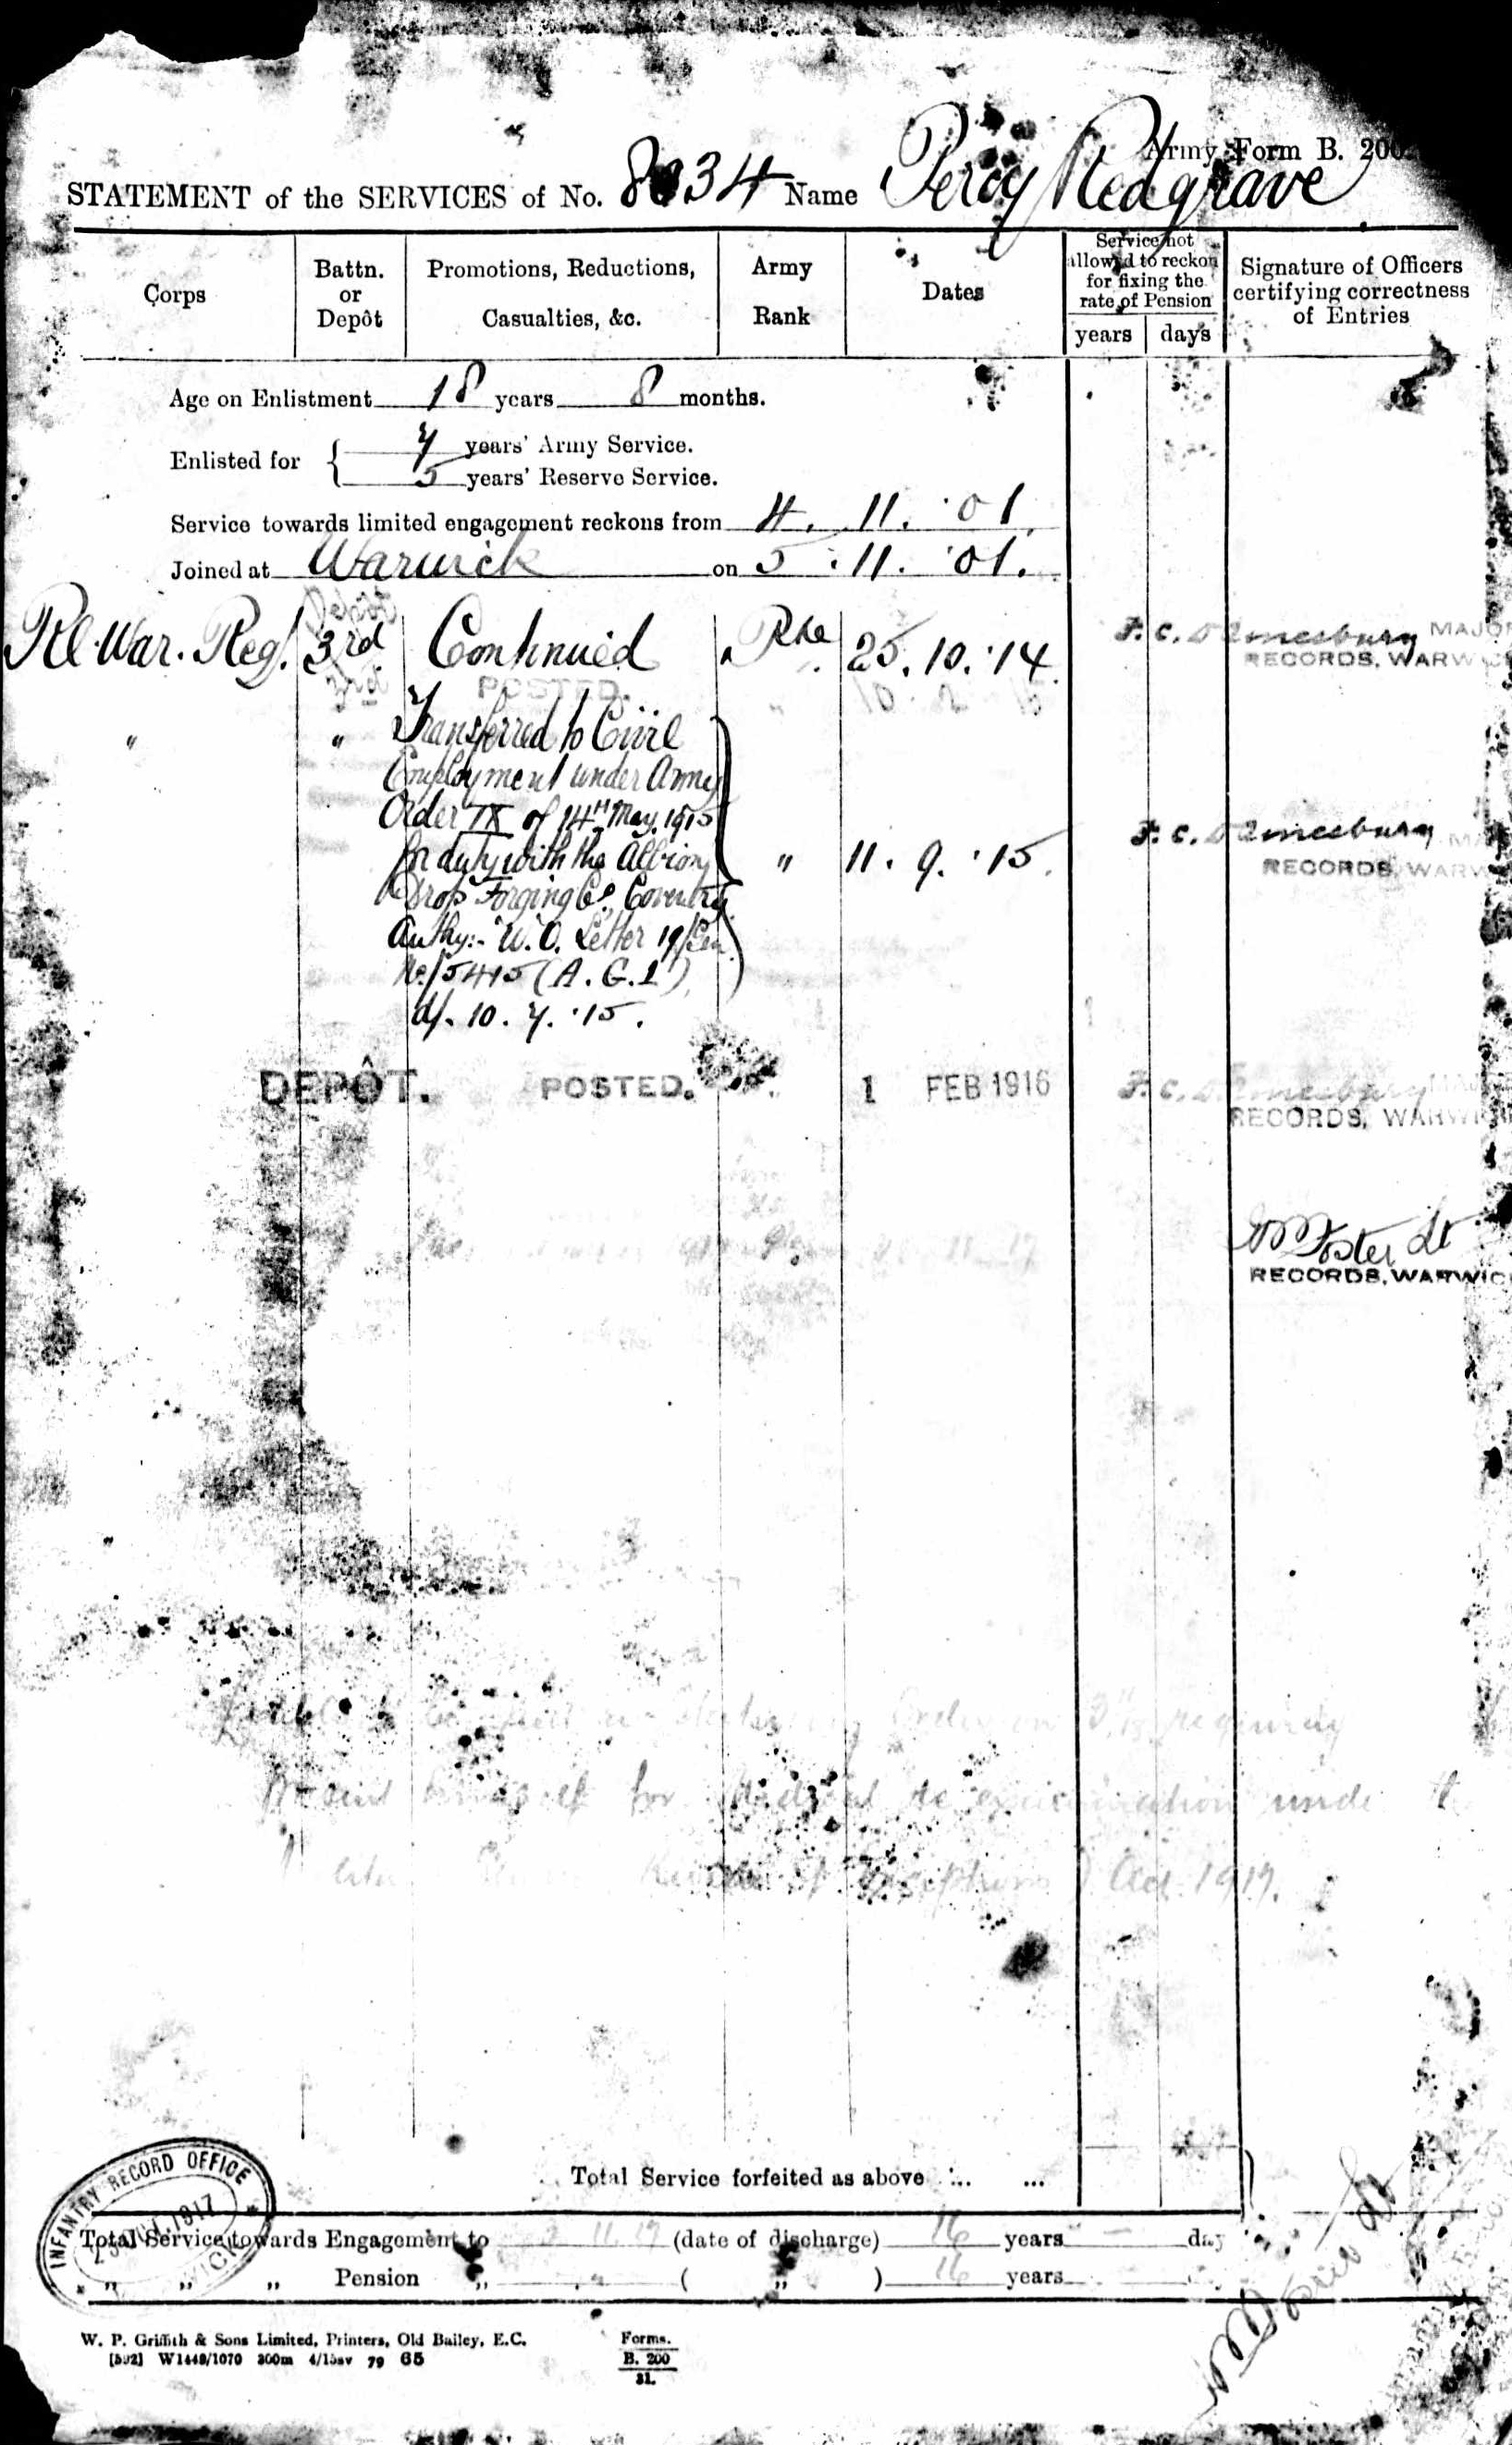 Army Form B. 200.
STATEMENT of the SERVICES of No. 8034 Name Percy Redgrave
Corps
Battn. or Depôt
Promotions, Reductions, Casualties, &c.
Army Rank
Dates
Service not allowed to reckon for fixing the rate of Pension
years days
Signature of Officers certifying correctness of Entries
Age on Enlistment 18 years 8 months.
Enlisted for { 7 years' Army Service.
5 years' Reserve Service.
Service towards limited engagement reckons from 4. 11. '01.
Joined at Warwick on 5. 11. '01.
Depôt
Rl. War. Reg. 3rd Continued Pte 25. 10. '14. F. C. MAJOR
RECORDS, WARWIC
POSTED.
" " Transferred to Civil
Employment under Army
Order IX of 14th May. 1915
for duty with the Albion " 11. 9. '15. F. C.
RECORDS, WARW
Drop Forging Co. Coventry.
Authy:- W.O. Letter 19/Gen.
No./5415 (A.G.1)
d/. 10. 7. '15.
DEPÔT. POSTED. 1 FEB 1916 F. C.
RECORDS, WARWI
Foster Lt
RECORDS, WARWIC
Order on requiring
present himself for Medical Re-examination under the
Review of Exceptions) Act. 1917.
Total Service forfeited as above ... ...
INFANTRY RECORD OFFICE
1917
Total Service towards Engagement to 11. 17 (date of discharge) 16 years — day
" " " Pension " " ( " ) 16 years
W. P. Griffith & Sons Limited, Printers, Old Bailey, E.C.
[592] W1448/1070 300m 4/15sv 79 65
Forms.
B. 200
31.